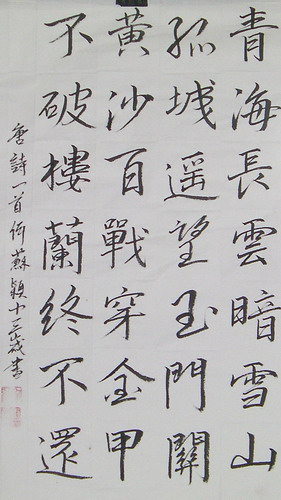 青海長雲暗雪山
孤城遥望玉門關
黄沙百戰穿金甲
不破樓蘭終不還
唐詩一首何蘇穎十三歲書